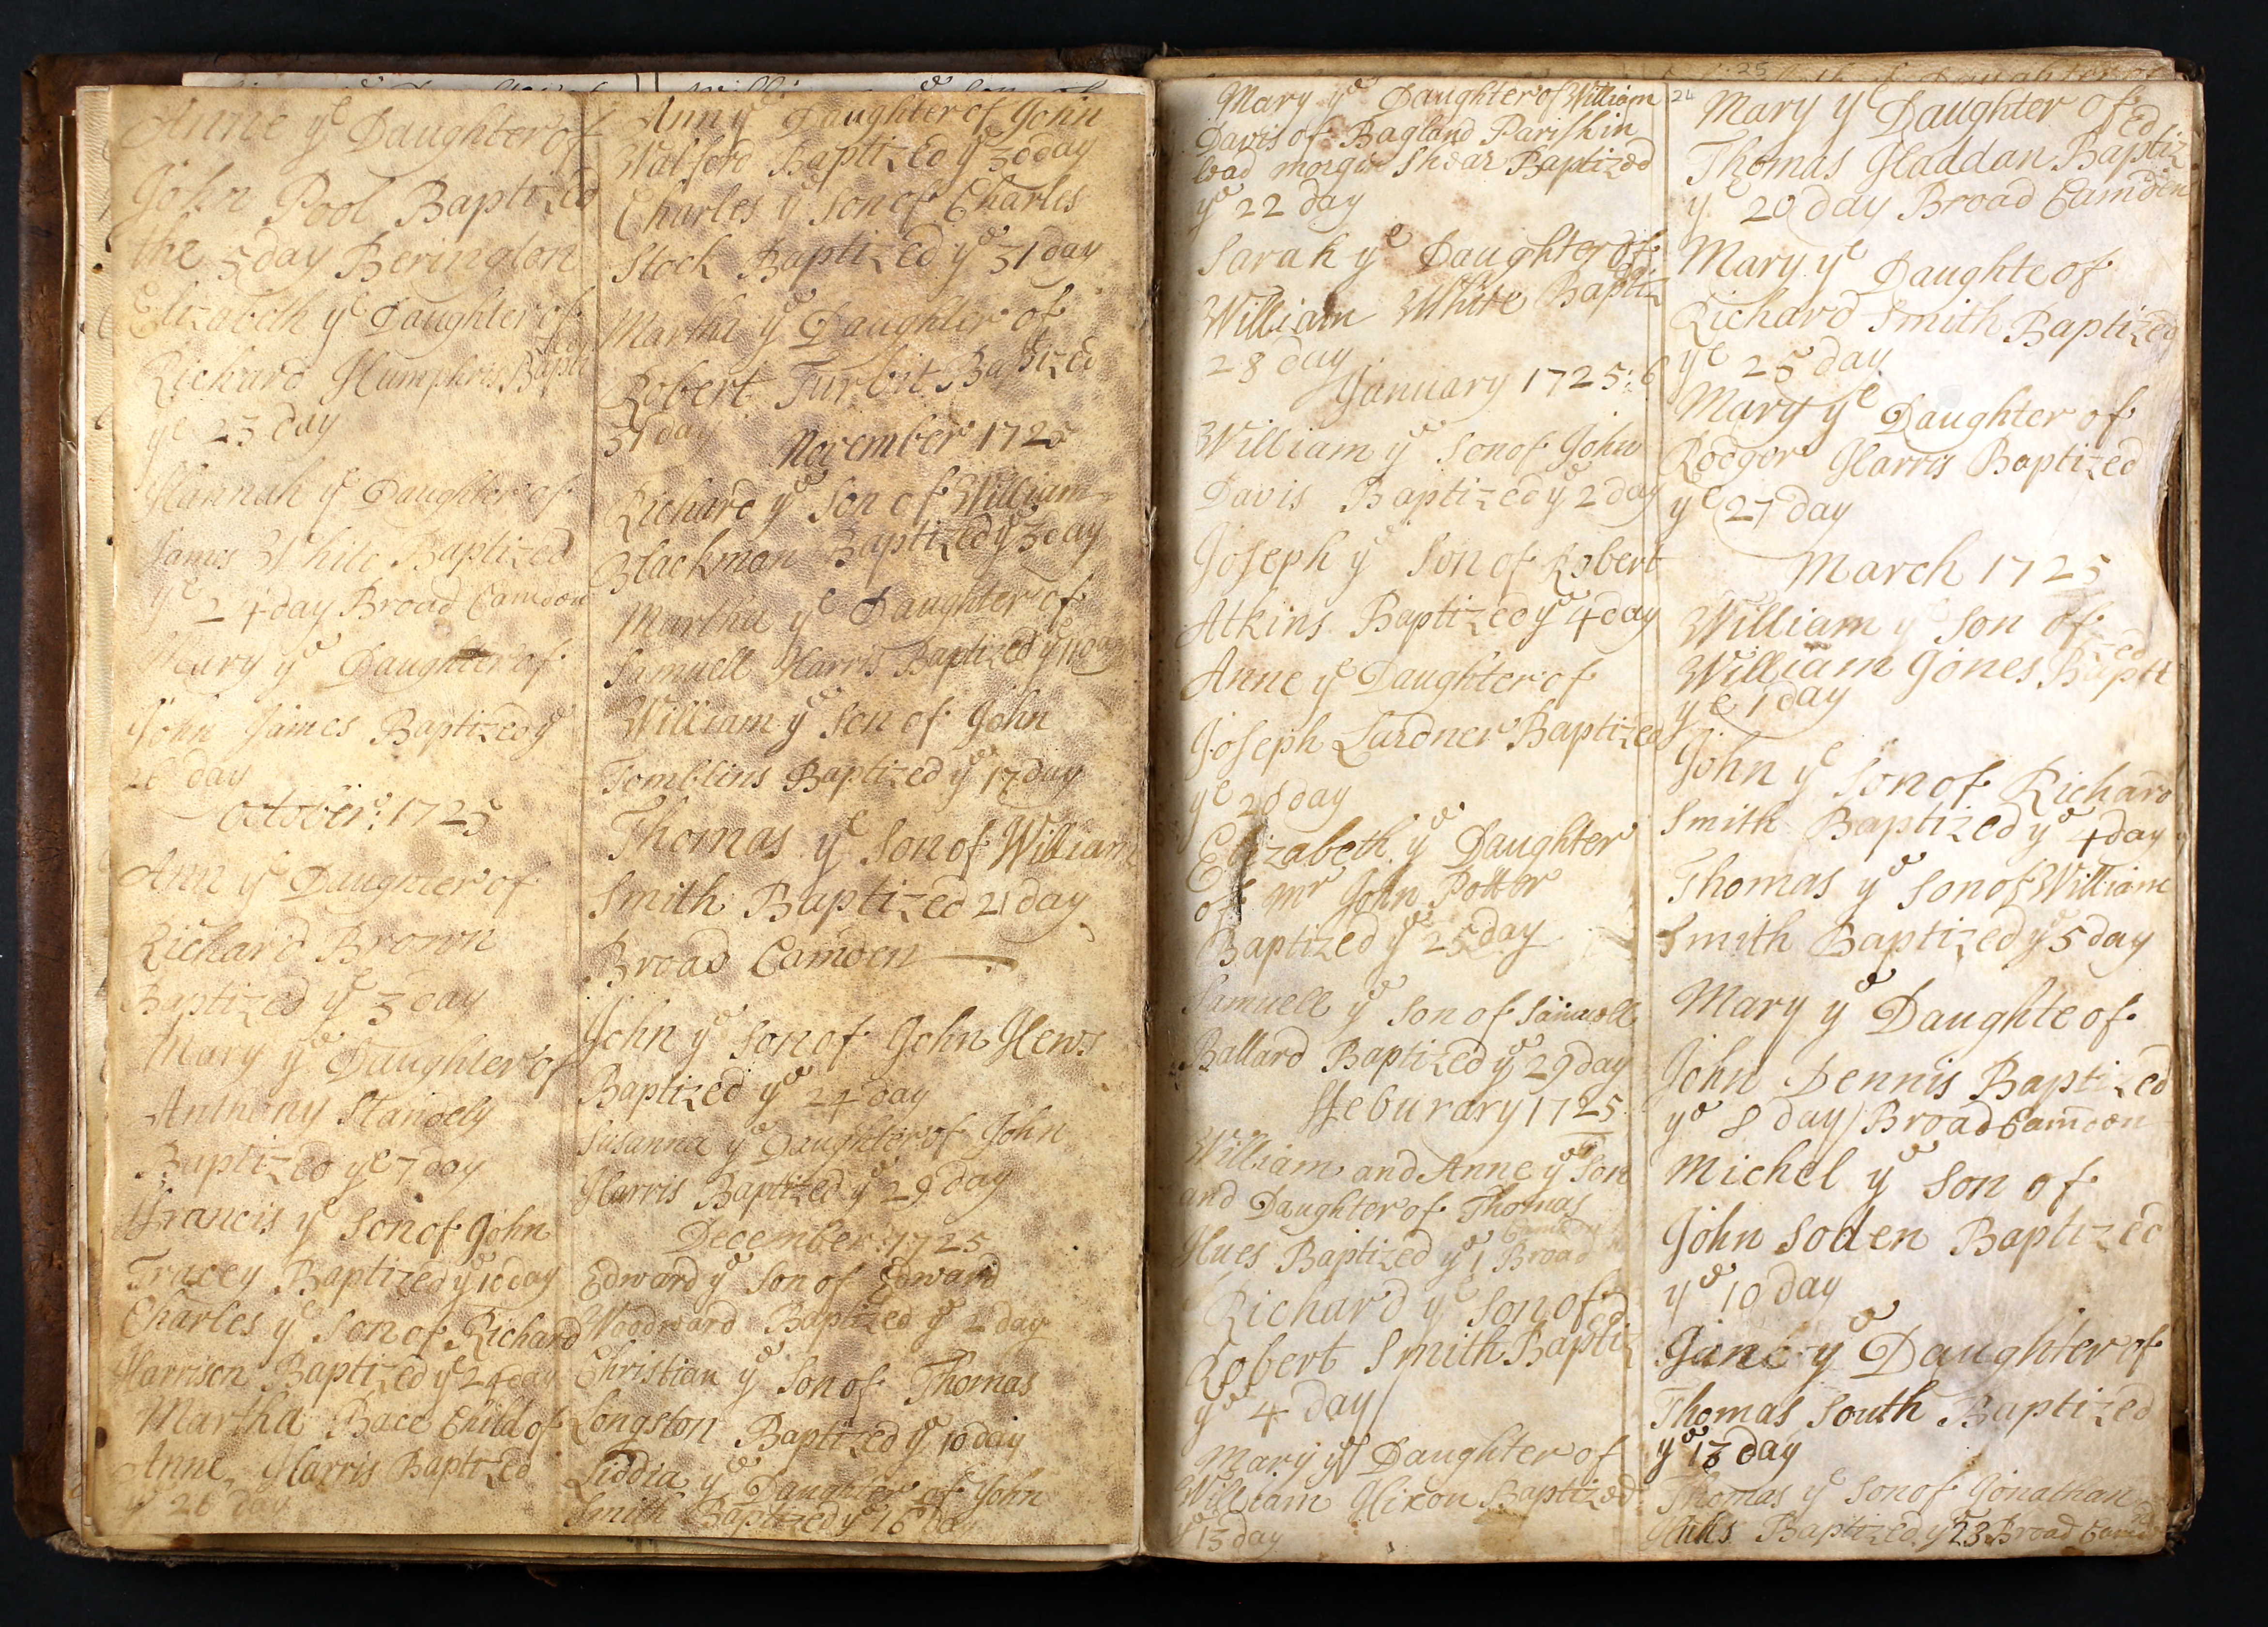 Anne ye Daughter of
John Pool Baptized
the 5 day Berington
Elizabeth ye Daughter of
Richard Humphris Bapti
ye 23 day
Hannah ye Daughter of
James White Baptized
ye 24 day Broad Camden
Mary ye Daughter of
John James Baptized ye
26 day
October: 1725
Ann ye Daughter of
Richard Brown
Baptized ye 3 day
Mary ye Daughter of
Anthony Standely
Baptized ye 7 day
ffrancis ye Son of John
Tracey Baptized ye 10 day
Charles ye Son of Richard
Harrison Baptized ye 24 day
Martha Bace Child of
Anne Harris Baptized
ye 26 day
Ann ye Daughter of John
Walford Baptized ye 30 day
Charles ye Son of Charles
Stock Baptized ye 31 day
Martha ye Daughter of
Robert Turbit Baptized
31 day
November 1725
Richard ye Son of William
Blackman Baptized ye 3 day
Martha ye Daughter of
Samuell Harris Baptized ye 11 day
William ye Son of John
Tomblins Baptized ye 17 day
Thomas ye Son of William
Smith Baptized 21 day
Broad Camden
John ye Son of John Hews
Baptized ye 24 day
Susanna ye Daughter of John
Harris Baptized ye 29 day
December 1725
Edward ye Son of Edward
Woodward Baptized ye 2 day
Christian ye Son of Thomas
Longston Baptized ye 10 day
Liddia ye Daughter of John
Smith Baptized ye 16 day
Mary ye Daughter of William
Davis of Bagland Parish in
lead morgin Shear Baptized
ye 22 day
Sarah ye Daughter of
William White Baptiz
28 day
January 1725:6
William ye Son of John
Davis Baptized ye 2 day
Joseph ye Son of Robert
Atkins Baptized ye 4 day
Anne ye Daughter of
Joseph Lardner Baptized
ye 20 day
Elizabeth ye Daughter
of Mr John Potter
Baptized ye 25 day
Samuell ye Son of Samuell
Ballard Baptized ye 29 day
ffeburary 1725
William and Anne ye Son
and Daughter of Thomas
Hues Baptized ye 1 Broad
Camden
Richard ye Son of
Robert Smith Baptized
ye 4 day
Mary ye Daughter of
William Hixon Baptized
ye 13 day
24
Mary ye Daughter of
Thomas Haddan Baptized
ye 20 day Broad Camden
Mary ye Daughte of
Richard Smith Baptized
ye 25 day
Mary ye Daughter of
Rodger Harris Baptized
ye 27 day
March 1725
William ye Son of
William Jones Baptized
ye 1 day
John ye Son of Richard
Smith Baptized ye 4 day
Thomas ye Son of William
Smith Baptized ye 5 day
Mary ye Daughte of
John Dennis Baptized
ye 8 day / Broad Camden
Michel ye Son of
John Soden Baptized
ye 10 day
Jane ye Daughter of
Thomas South Baptized
ye 13 day
Thomas ye Son of Jonathan
Baptized ye 23 Broad Camden